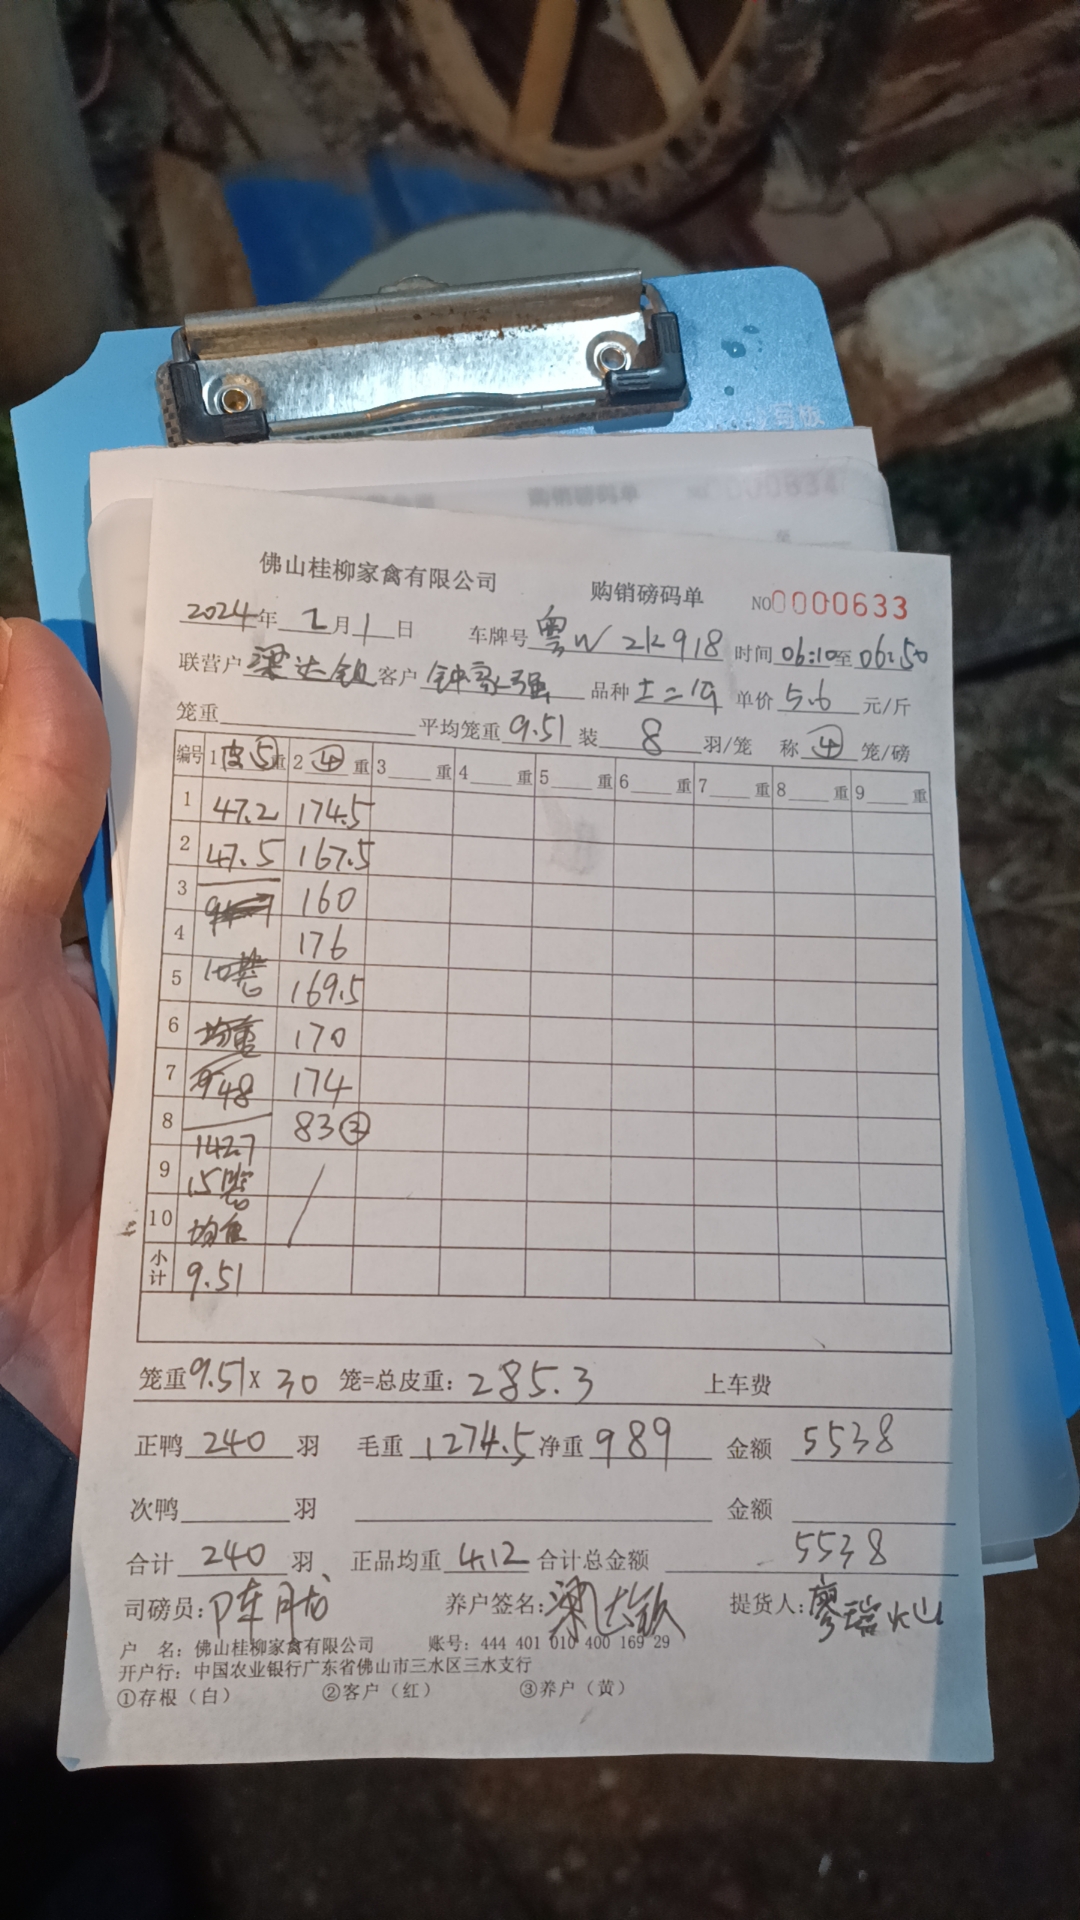 佛山桂柳家禽有限公司 购销磅码单 NO0000633
2024年 2月1日 车牌号 粤W2K918 时间06:10至06:50
联营户 梁达钦 客户 钟家强 品种 土二 单价5.6元/斤
笼重 平均笼重 9.51 装 8 羽/笼 称 ④ 笼/磅
编号 1皮⑤重 2④重 3重 4重 5重 6重 7重 8重 9重
1 47.2 174.5
2 47.5 167.5
3 160
4 176
5 10笼 169.5
6 均重 170
7 48 174
8 142.7 83②
9 15笼
10 均重
小计 9.51
笼重9.51X 30 笼=总皮重: 285.3 上车费
正鸭 240 羽 毛重 1274.5 净重 989 金额 5538
次鸭 羽 金额
合计 240 羽 正品均重 4.12 合计总金额 5538
司磅员: 陈 养户签名: 梁达钦 提货人: 廖瑞山
户 名: 佛山桂柳家禽有限公司 账号: 444 401 010 400 169 29
开户行: 中国农业银行广东省佛山市三水区三水支行
①存根（白） ②客户（红） ③养户（黄）